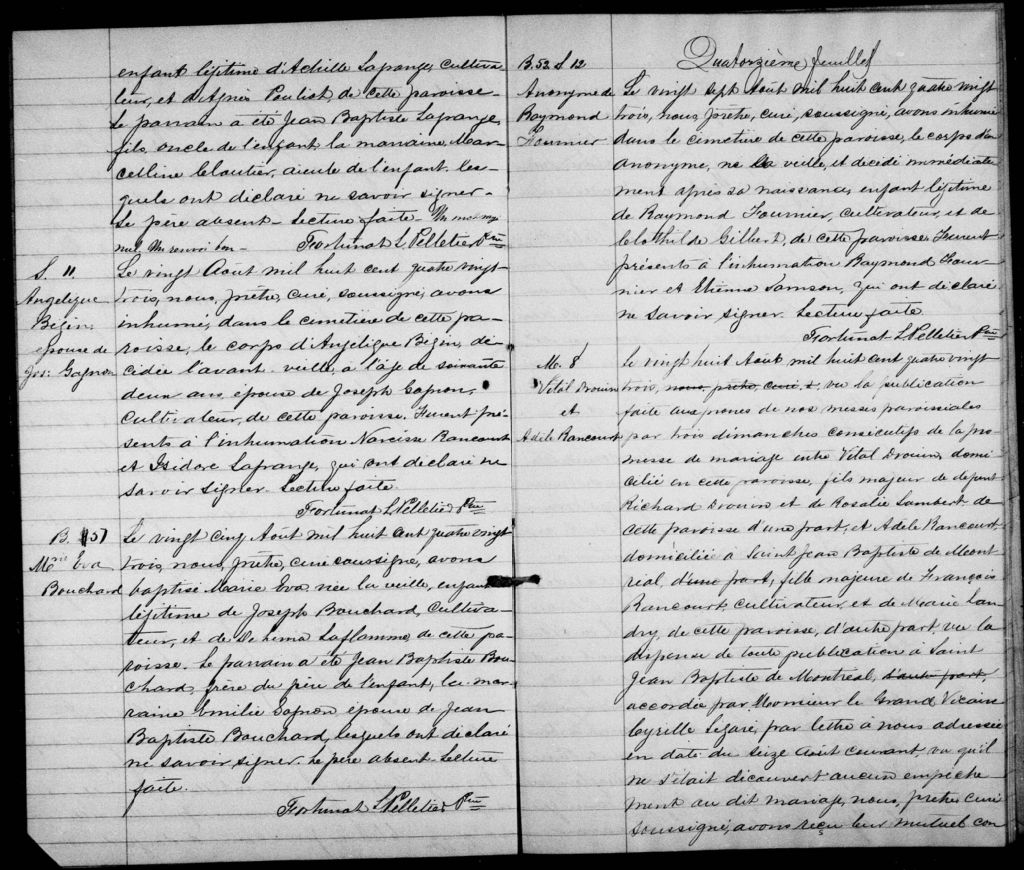 enfant légitime d'Achille Lagrange, cultiva-
teur, et d'Agnès Pouliot, de cette paroisse-
Le parrain a été Jean Baptiste Lagrange,
fils, oncle de l'enfant la marraine, Mar-
celline Cloutier, aieule de l'enfant, les-
quels ont déclaré ne savoir signer-
Le père absent- Lecture faite. Un mot
nul. Un renvoi bon- Fortunat L. Pelletier Ptre
S. 11.
Angelique
Bizin,
épouse de
Jos: Gagnon
Le vingt Août mil huit cent quatre vingt-
trois, nous, prêtre, curé, soussigné, avons
inhumé, dans le cimetière de cette pa-
roisse, le corps d'Angelique Bizin, dé-
cidée l'avant-veille, à l'age de soixante
deux ans, épouse de Joseph Gagnon,
Cultivateur, de cette paroisse. Furent pré-
sents à l'inhumation Narcisse Rancourt
et Isidore Lagrange, qui ont déclaré ne
savoir signer- Lecture faite.
Fortunat L Pelletier Ptre
B. 51
Marie Eva
Bouchard
Le vingt cinq Août mil huit cent quatre vingt
trois, nous, prêtre, curé soussigné, avons
baptisé Marie Eva, née la veille, enfant
légitime de Joseph Bouchard, Cultiva-
teur, et de Laflamme, de cette pa-
roisse. Le parrain a été Jean Baptiste Bou-
chard, frère du père de l'enfant, la mar-
raine Emilie Gagnon épouse de Jean
Baptiste Bouchard, lesquels ont déclaré
ne savoir signer. Le père absent. Lecture
faite.
Fortunat L Pelletier Ptre
Quatorzième feuillet
B. 52 S 12
Anonyme de
Raymond
Fournier
Le vingt sept Août mil huit cent quatre vingt
trois, nous, prêtre, curé, soussigné, avons inhumé
dans le cimetière de cette paroisse, le corps d'un
anonyme, né la veille, et décédé immédiate
ment après sa naissance, enfant légitime
de Raymond Fournier, cultivateur, et de
Clothilde Gilbert, de cette paroisse. Furent
présents à l'inhumation Raymond Four-
nier et Etienne Samson, qui ont déclaré
ne savoir signer. Lecture faite.
Fortunat L Pelletier Ptre
M. 8
Vital Drouin
et
Adele Rancourt
Le vingt huit Août mil huit cent quatre vingt
trois, nous, prêtre, curé, s, vu la publication
faite aux prones de nos messes paroissiales
par trois dimanches consécutifs de la pro-
messe de mariage entre Vital Drouin, domi
cilié en cette paroisse, fils majeur de defunt
Richard Drouin et de Rosalie Lambert de
cette paroisse d'une part, et Adele Rancourt
domiciliée à Saint Jean Baptiste de Mont
réal, d'une part, fille majeure de François
Rancourt, cultivateur, et de Marie Lan-
dry, de cette paroisse, d'autre part, vu la
dispense de toute publication à Saint
Jean Baptiste de Montréal, d'autre part,
accordée par Monsieur le Grand Vicaire
Cyrille Légaré, par lettre à nous adressée
en date du seize Août courant, vu qu'il
ne s'était découvert aucun empêche
ment au dit mariage, nous, prêtre, curé
soussigné, avons reçu leur mutuel con